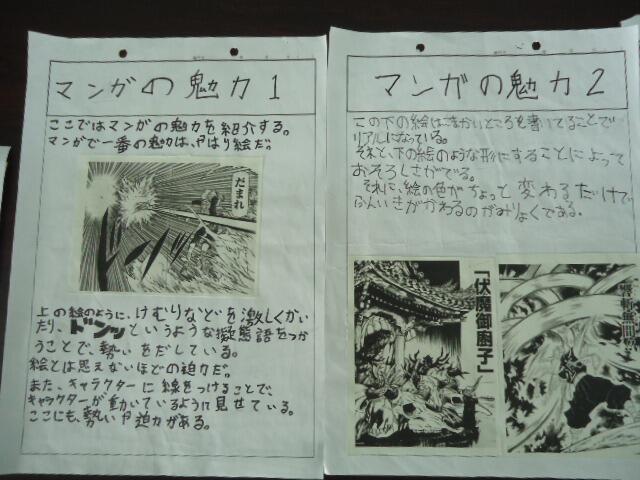 マンガの魅力1
ここではマンガの魅力を紹介する。
マンガで一番の魅力は、やはり絵だ。
だまれ
上の絵のように、けむりなどを激しくかい
たり、ドンッというような擬態語をつか
うことで、勢いをだしている。
絵とは思えないほどの迫力だ。
また、キャラクターに線をつけることで、
キャラクターが動いているように見せている。
ここにも、勢いや迫力がある。
マンガの魅力2
この下の絵はこまかいところを書いてることで
リアルになっている。
それと、下の絵のような形にすることによって
おそろしさがでる。
それに、絵の色がちょっと変わるだけで
ふんいきがかわるのがみりょくである。
「伏魔御廚子」